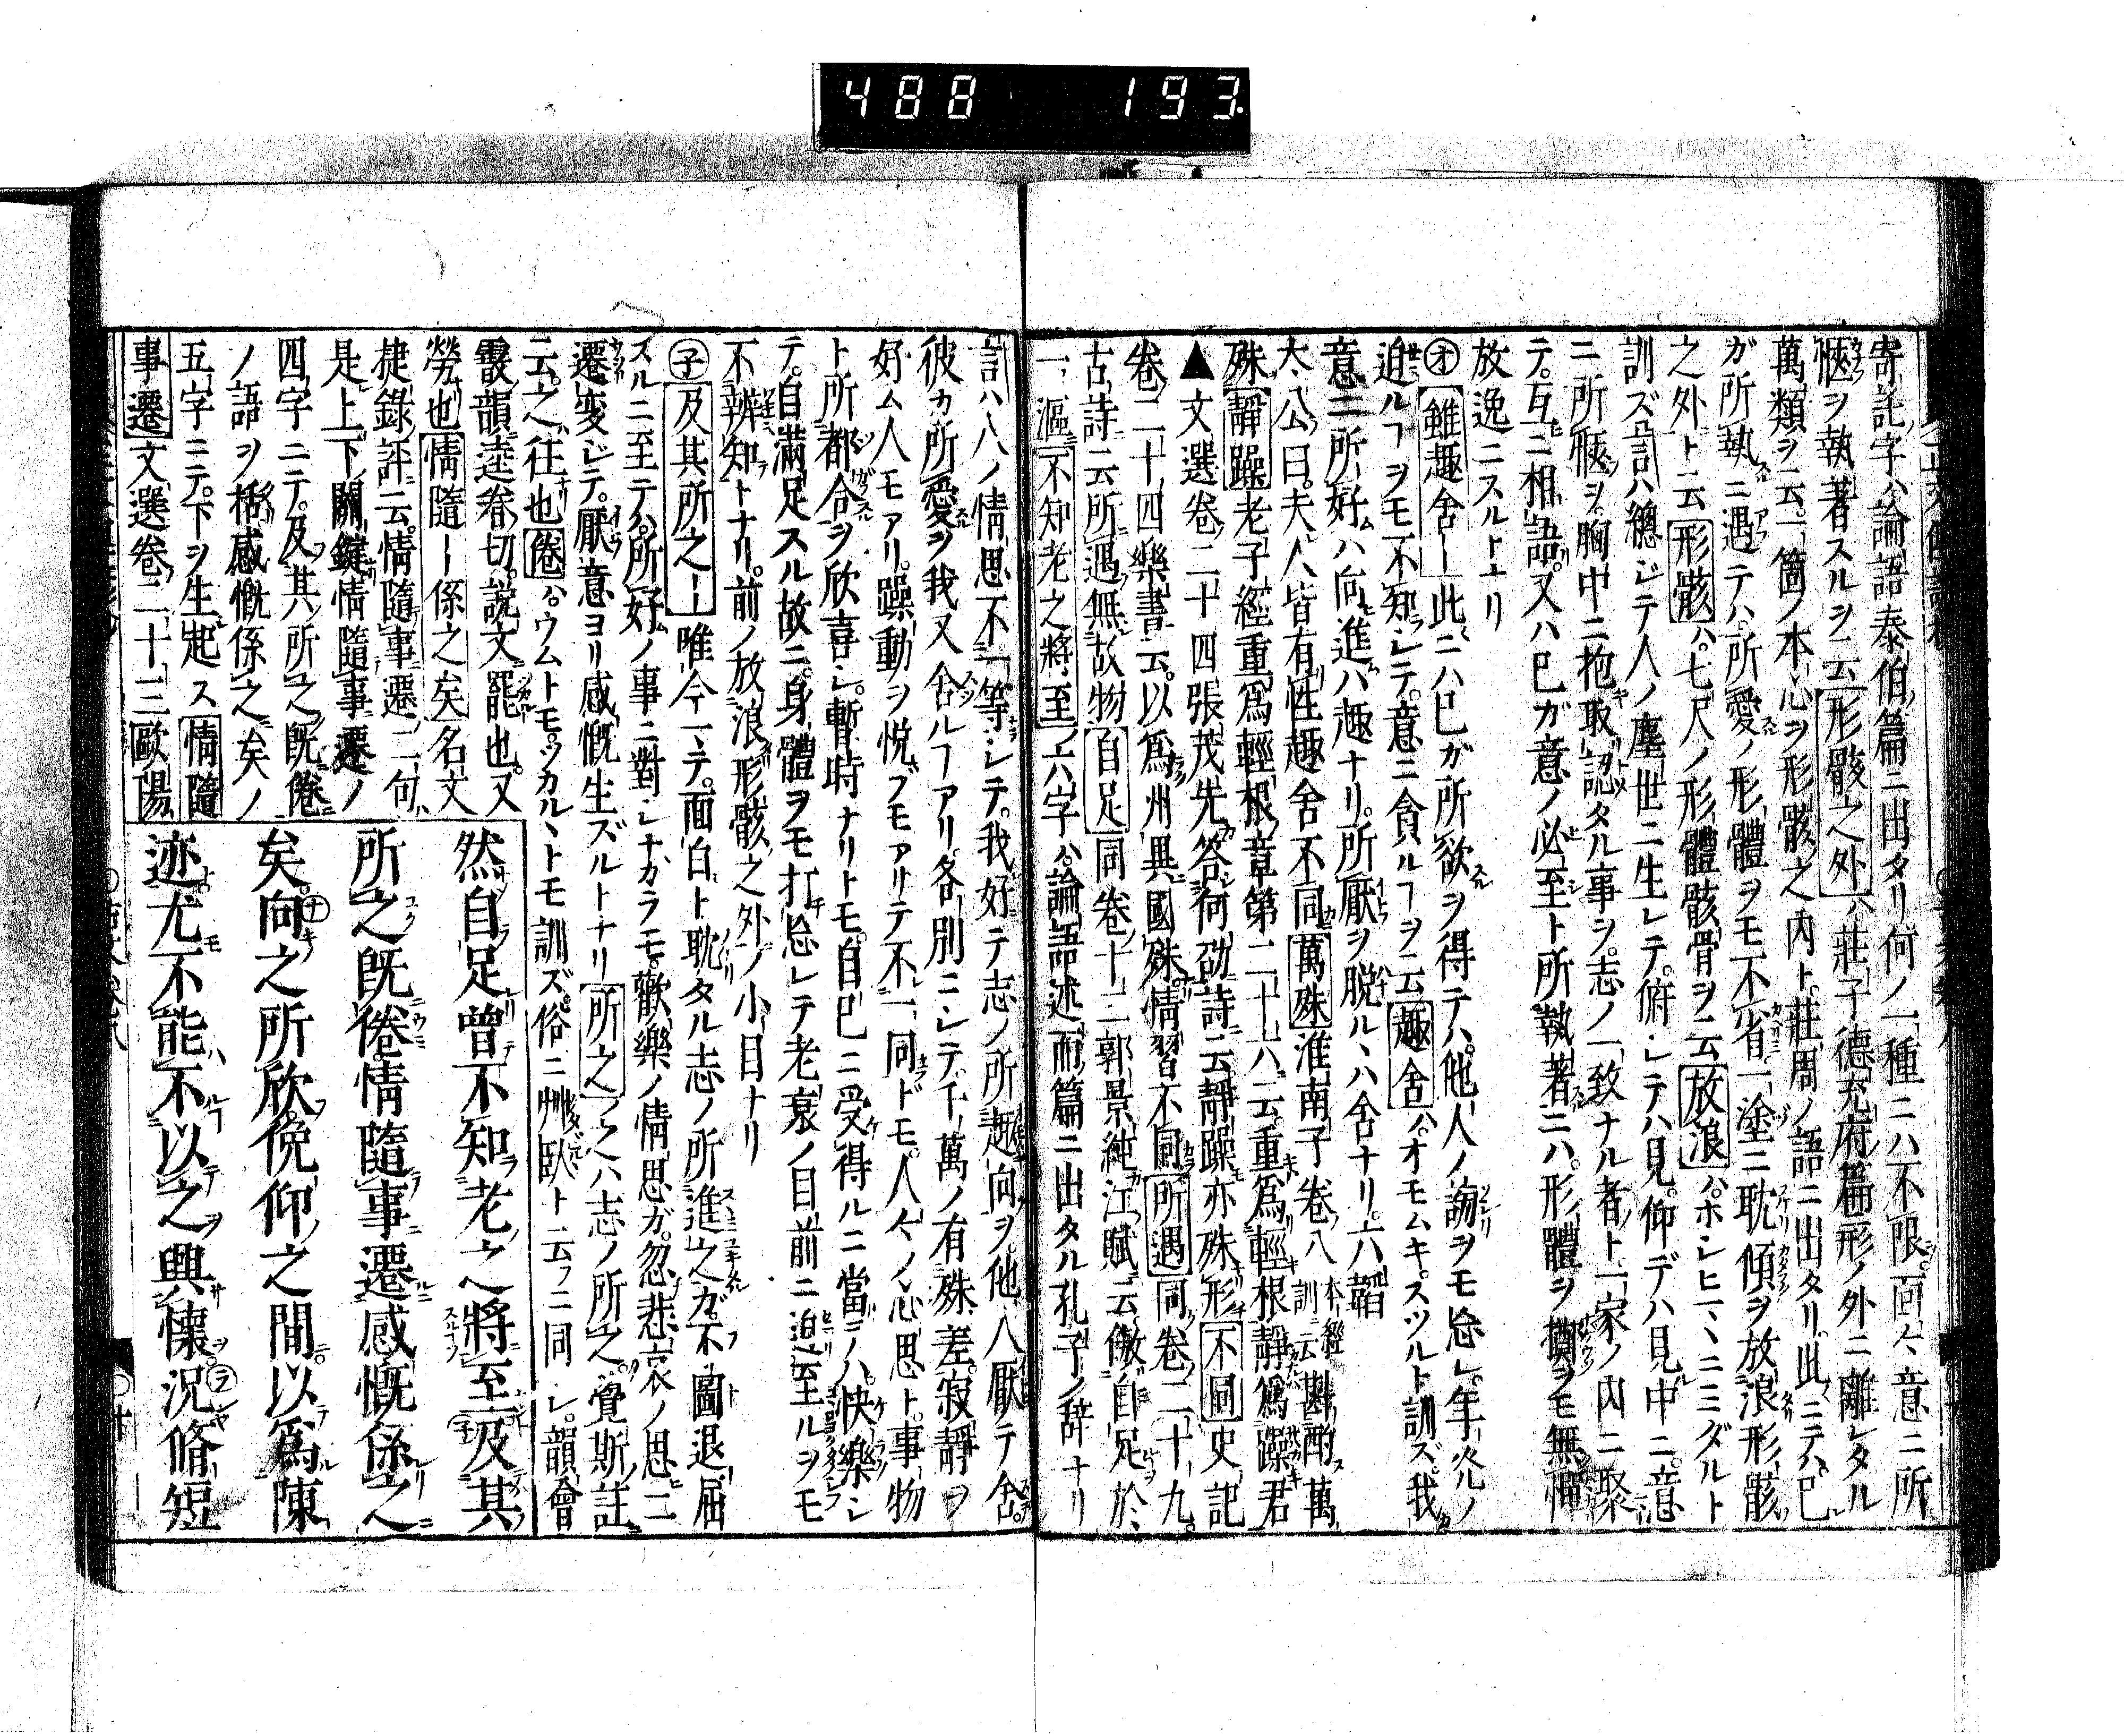 488 193
寄託字ハ論語泰伯篇ニ出タリ何ノ一種ニハ不限面々意ニ所
愜ヲ執著スルヲ云形骸之外ハ莊子德充府篇形ノ外ニ離レタル
萬類ヲ云一箇ノ本心ヲ形骸之內ト莊周ノ語ニ出タリ此ニテハ已
ガ所執ニ遇テハ所愛ノ形體ヲモ不省一塗ニ耽傾ヲ放浪形骸
之外ト云形骸ハ七尺ノ形體骸骨ヲ云放浪ハホシヒマヽニミダルト
訓ズ言ハ總ジテ人ノ塵世ニ生レテ俯シテハ見仰デハ見中ニ意
ニ所愜ヲ胸中ニ抱取認タル事ヲ志ノ一致ナル者ト一家ノ內ニ聚
テ互ニ相語又ハ已ガ意ノ必至ト所執著ニハ形體ヲモ無憚
放逸ニスルトナリ
オ雖趣舍ー此ニハ已ガ所欲ヲ得テハ他人ノ謗ヲモ忘レ年光ノ
迫ルヿヲモ不知シテ意ニ貪ルヿヲ云趣舍ハオモムキスツルト訓ズ我
意ニ所好ハ向進ハ趣ナリ所厭ヲ脫ルヽハ舍ナリ六韜
太公曰夫人皆有性趣舍不同萬殊淮南子卷八本經訓ニ云斟酌萬
殊靜躁老子經重爲輕根章第二十六云重爲輕根靜爲躁君
▲文選卷二十四張茂先答何劭詩云靜躁亦殊形不同史記
卷二十四樂書云以爲州異國殊情習不同所遇同卷二十九
古詩云所遇無故物自足同卷十二郭景純江賦云傲自足於
一漚不知老之將至ノ六字ハ論語述而篇ニ出タル孔子ノ辞ナリ
言ハ八ノ情思不一等シテ我好テ志ノ所趣向ヲ他ハ厭テ舍
彼カ所愛ヲ我又舍ルヿアリ各別ニシテ千萬ノ有殊差寂靜ヲ
好ム人モアリ躁動ヲ悅ブモアリテ不一同ドモ人々ノ心思ト事物
ト所都合ヲ欣喜シ暫時ナリトモ自已ニ受得ルニ當テハ快樂シ
テ自滿足スル故ニ身體ヲモ打忘レテ老衰ノ目前ニ迫至ルヲモ
不辨知トナリ前ノ放浪形骸之外ノ小目ナリ
子及其所之ー唯今マテ面白ト耽タル志ノ所進之ガ不圖退屈
スルニ至テハ所好ノ事ニ對シナガラモ歡樂ノ情思ガ忽悲哀ノ思ニ
遷変ジテ厭意ヨリ感慨生ズルトナリ所之ノ之ハ志ノ所之覺斯註
云之往也倦ハウムトモツカルヽトモ訓ズ俗ニ艸臥ト云フニ同シ韻會
霰韻逵眷切說文罷也又
勞也情隨ー係之矣名文
捷錄評云情隨事遷二句
是上下關鍵情隨事遷ノ
四字ニテ及其所之既倦
ノ語ヲ括感慨係之矣ノ
五字ニテ下ヲ生起ス情隨
事遷文選卷二十三歐陽
然自足曾不知老之將至及其
所之既倦情隨事遷感慨係之
矣向之所欣俛仰之間以爲陳
迹尤不能不以之興懷況脩短